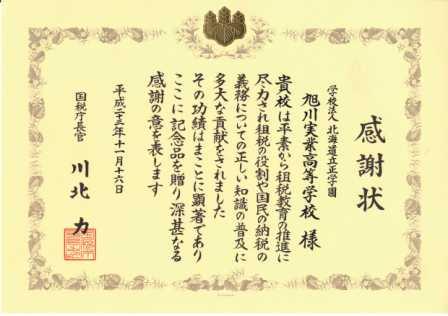 感謝状
学校法人 北海道立正学園
旭川実業高等学校 様
貴校は平素から租税教育の推進に
尽力され租税の役割や国民の納税の
義務についての正しい知識の普及に
多大な貢献をされました
その功績はまことに顕著であり
ここに記念品を贈り深甚なる
感謝の意を表します
平成二十三年十一月十六日
国税庁長官 川北 力